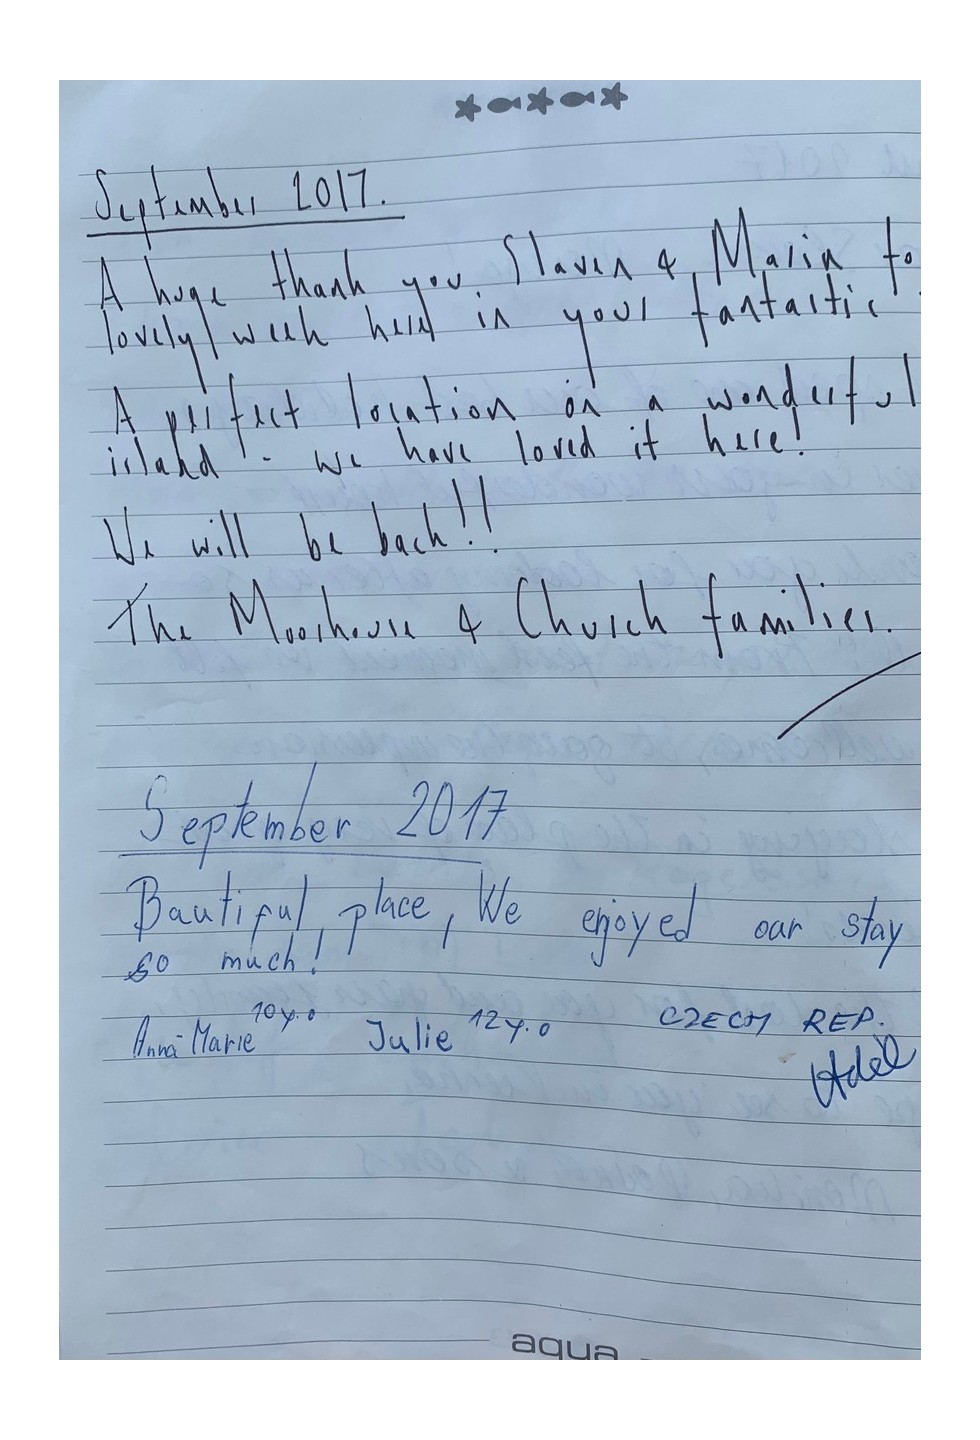 September 2017.
A huge thank you Slaven & Marin fo
lovely week here in your fantastic
A perfect location on a wonderful
island - we have loved it here!
We will be back!!
The Moorhouse & Church families.
September 2017
Bautiful place, We enjoyed our stay
so much!
Anna-Marie 10 y.o Julie 12 y.o CZECH REP.
Adél
aqua